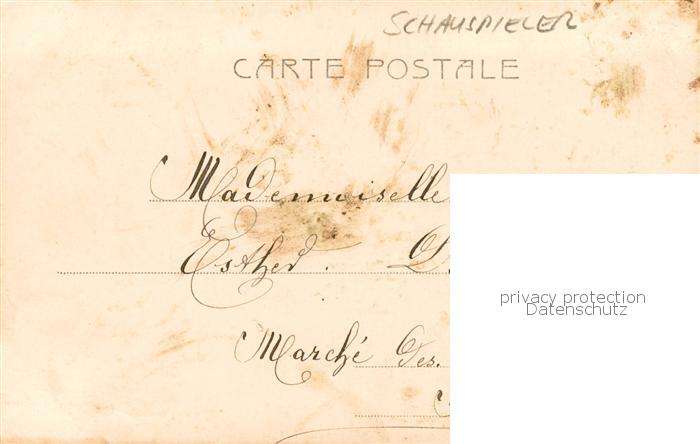 SCHAUSPIELER
CARTE POSTALE
Mademoiselle
Esther. D
Marché Des.
privacy protection
Datenschutz